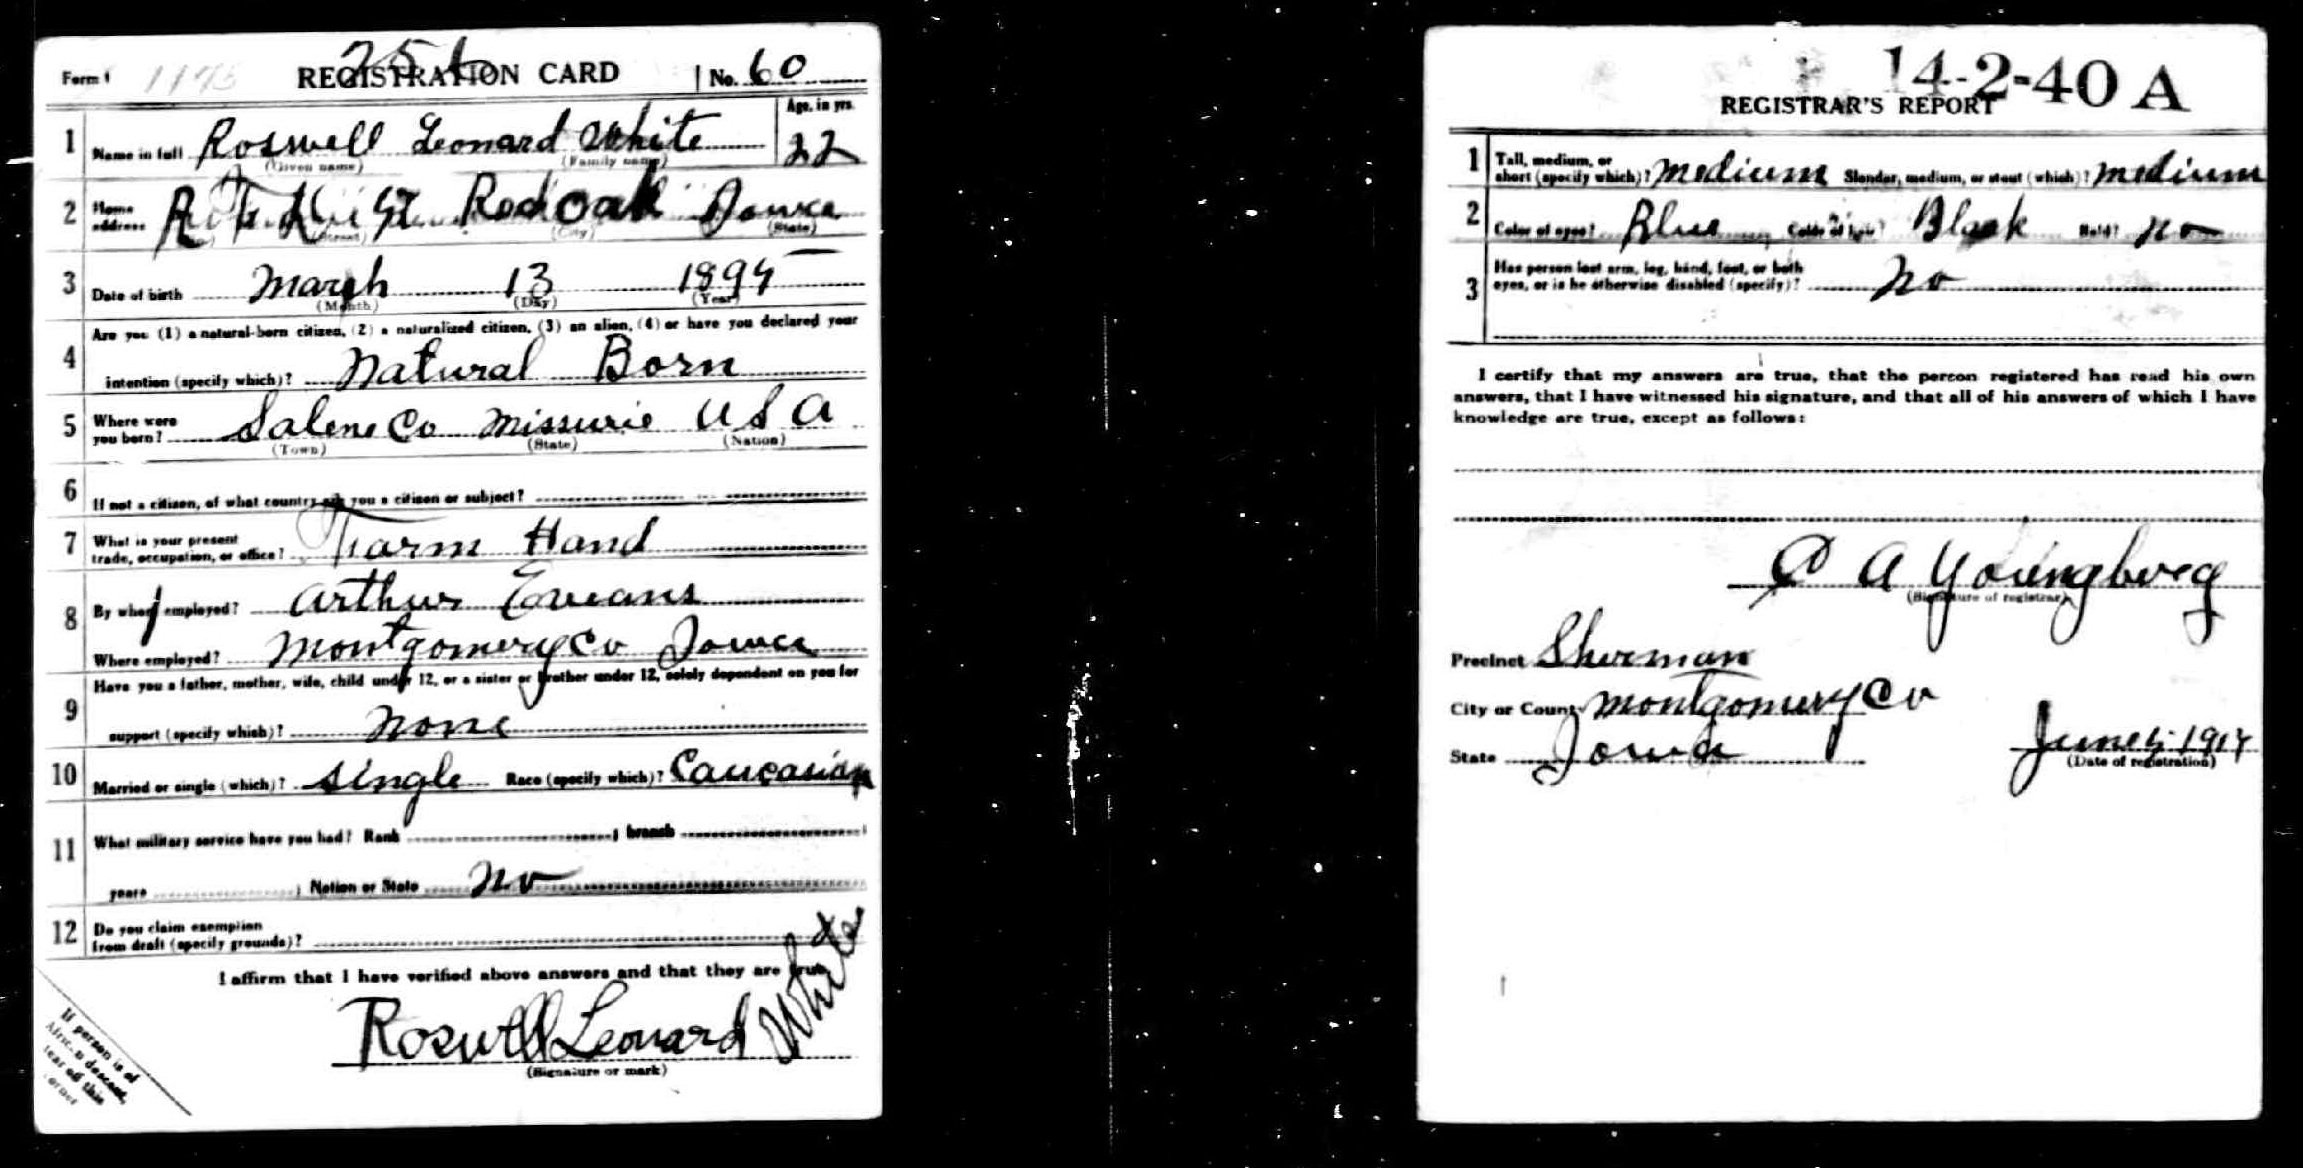 Form 1 1175 REGISTRATION CARD No. 60
Age, in yrs.
1 Name in full Roswell Leonard White 22
(Given name) (Family name)
2 Home address Red Oak Iowa
(Street) (City) (State)
3 Date of birth March 13 1895
(Month) (Day) (Year)
Are you (1) a natural-born citizen, (2) a naturalized citizen, (3) an alien, (4) or have you declared your
4 intention (specify which)? Natural Born
5 Where were you born? Salene Co Missurie U S A
(Town) (State) (Nation)
6 If not a citizen, of what country are you a citizen or subject?
7 What is your present trade, occupation, or office? Farm Hand
8 By whom employed? Arthur Eveans
Where employed? Montgomery Co Iowa
Have you a father, mother, wife, child under 12, or a sister or brother under 12, solely dependent on you for
9 support (specify which)? None
10 Married or single (which)? Single Race (specify which)? Caucasian
11 What military service have you had? Rank ; branch
years ; Nation or State No
12 Do you claim exemption from draft (specify grounds)?
I affirm that I have verified above answers and that they are true.
Roswell Leonard White
(Signature or mark)
If person is of
African descent,
tear off this
corner
14-2-40 A
REGISTRAR'S REPORT
1 Tall, medium, or short (specify which)? Medium Slender, medium, or stout (which)? Medium
2 Color of eyes? Blue Color of hair? Black Bald? No
3 Has person lost arm, leg, hand, foot, or both eyes, or is he otherwise disabled (specify)? No
I certify that my answers are true, that the person registered has read his own
answers, that I have witnessed his signature, and that all of his answers of which I have
knowledge are true, except as follows:
C A Youngberg
(Signature of registrar)
Precinct Sherman
City or County Montgomery Co
State Iowa June 5 1917
(Date of registration)